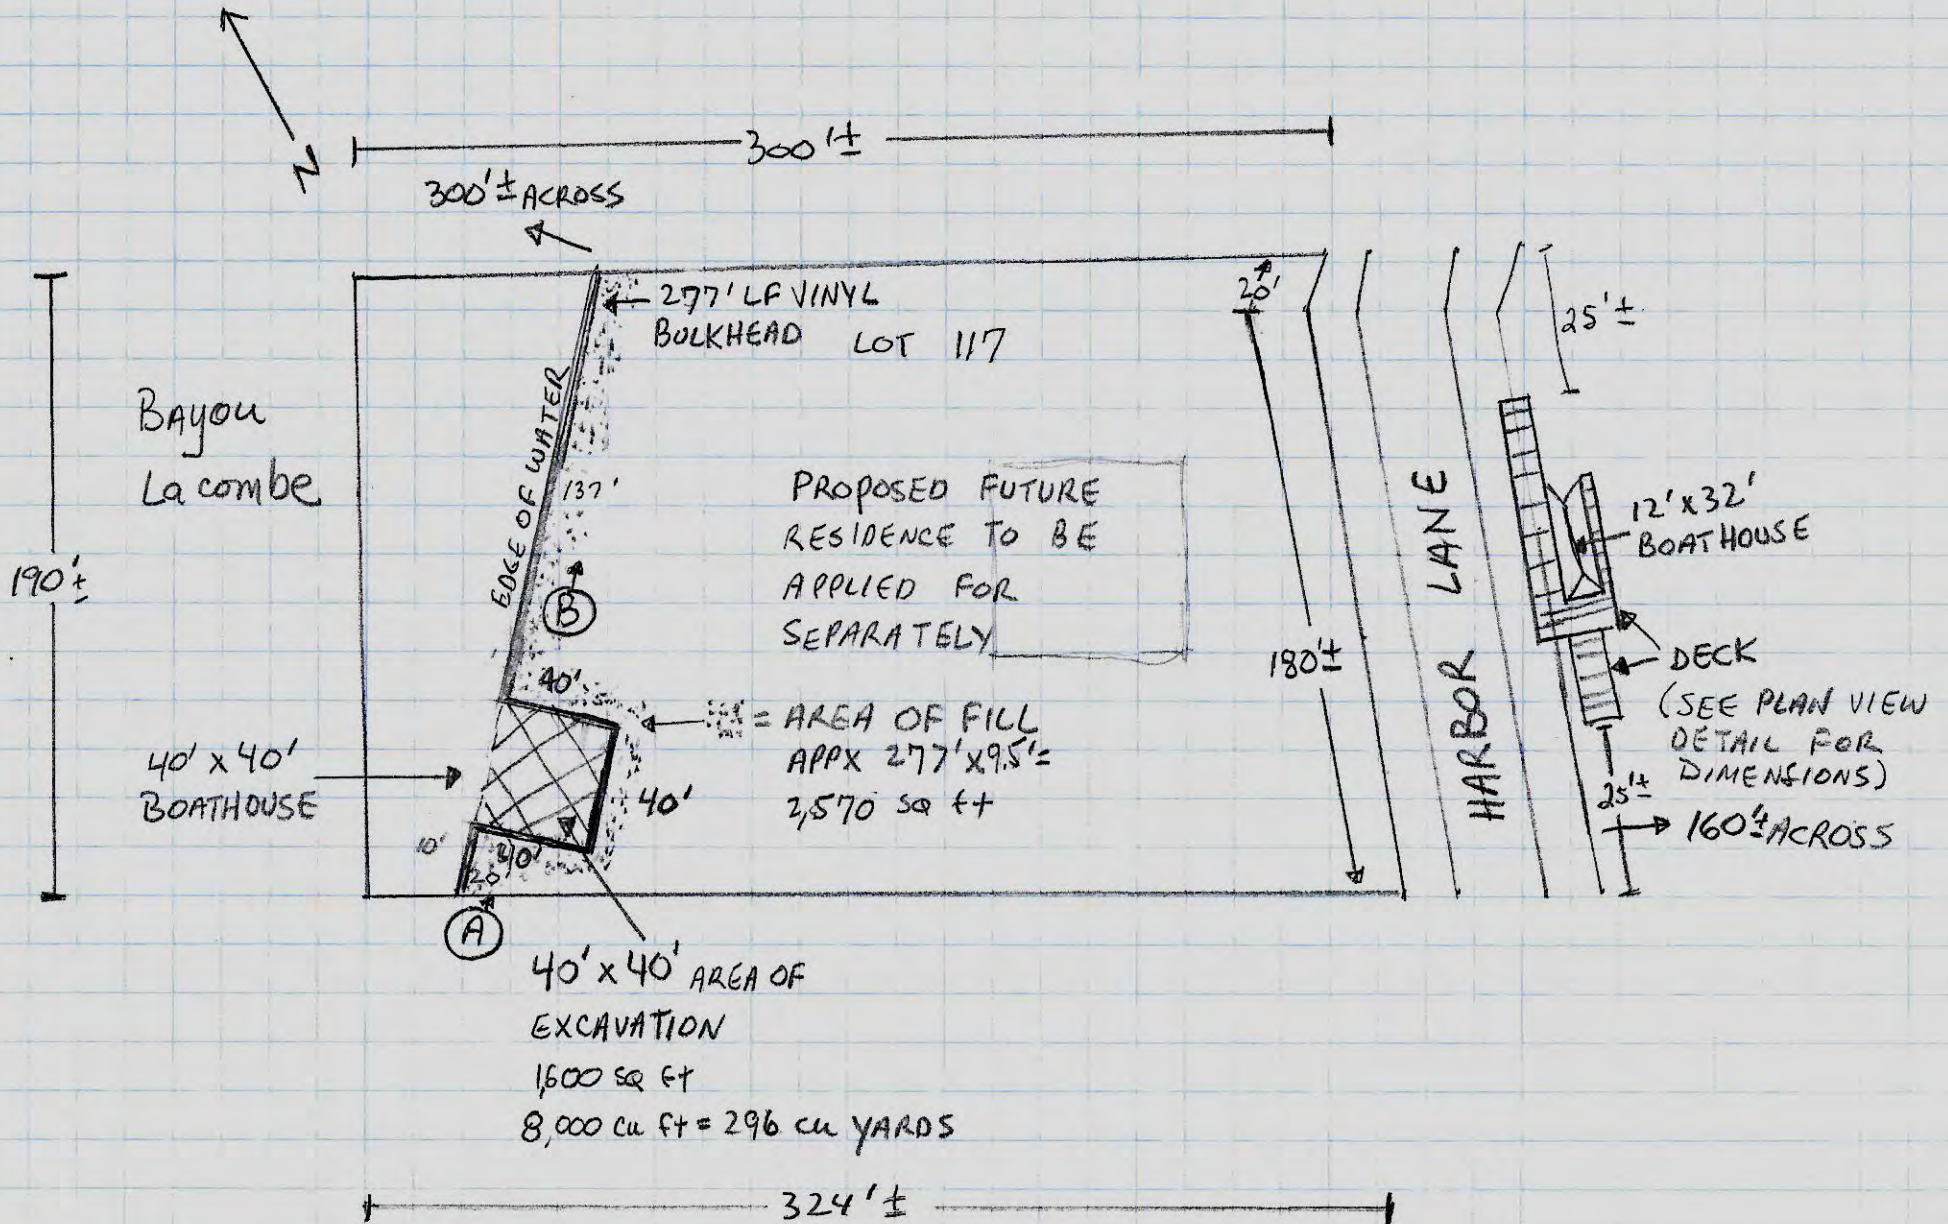 N
300'±
300'± ACROSS
277' LF VINYL
BULKHEAD
LOT 117
20'
25'±
BAyou
Lacombe
190'±
EDGE OF WATER
137'
B
PROPOSED FUTURE
RESIDENCE TO BE
APPLIED FOR
SEPARATELY
180'±
HARBOR LANE
12' x 32'
BOATHOUSE
DECK
(SEE PLAN VIEW
DETAIL FOR
DIMENSIONS)
25'±
160'± ACROSS
40'
= AREA OF FILL
APPX 277' x 9.5' =
2,570 SQ Ft
40' x 40'
BOATHOUSE
40'
10'
40'
20'
A
40' x 40' AREA OF
EXCAVATION
1,600 SQ Ft
8,000 cu ft = 296 cu YARDS
324'±